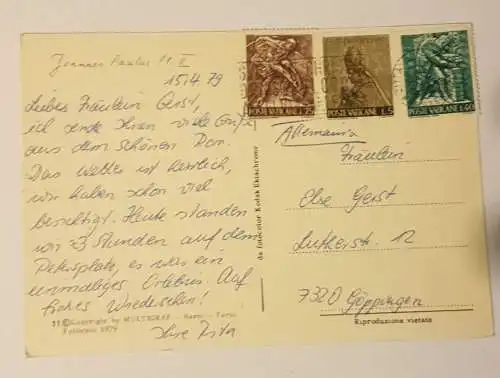 Joannes Paulus II
15/4 79
Liebes Fräulein Gerst,
ich sende Ihnen viele Grüße
aus dem schönen Rom.
Das Wetter ist herrlich,
wir haben schon viel
besichtigt. Heute standen
wir 3 Stunden auf dem
Petersplatz, es war ein
einmaliges Erlebnis. Auf
frohes Wiedersehen!
Ihre Rita
11 © Copyright by MULTIGRAF - Narni - Terni
Febbraio 1979
da fotocolor Kodak Ektachrome
POSTE VATICANE
POSTE VATICANE L.5
POSTE VATICANE L.40
Allemania
Fräulein
Else Gerst
Lutherstr. 12
7320 Göppingen
Riproduzione vietata